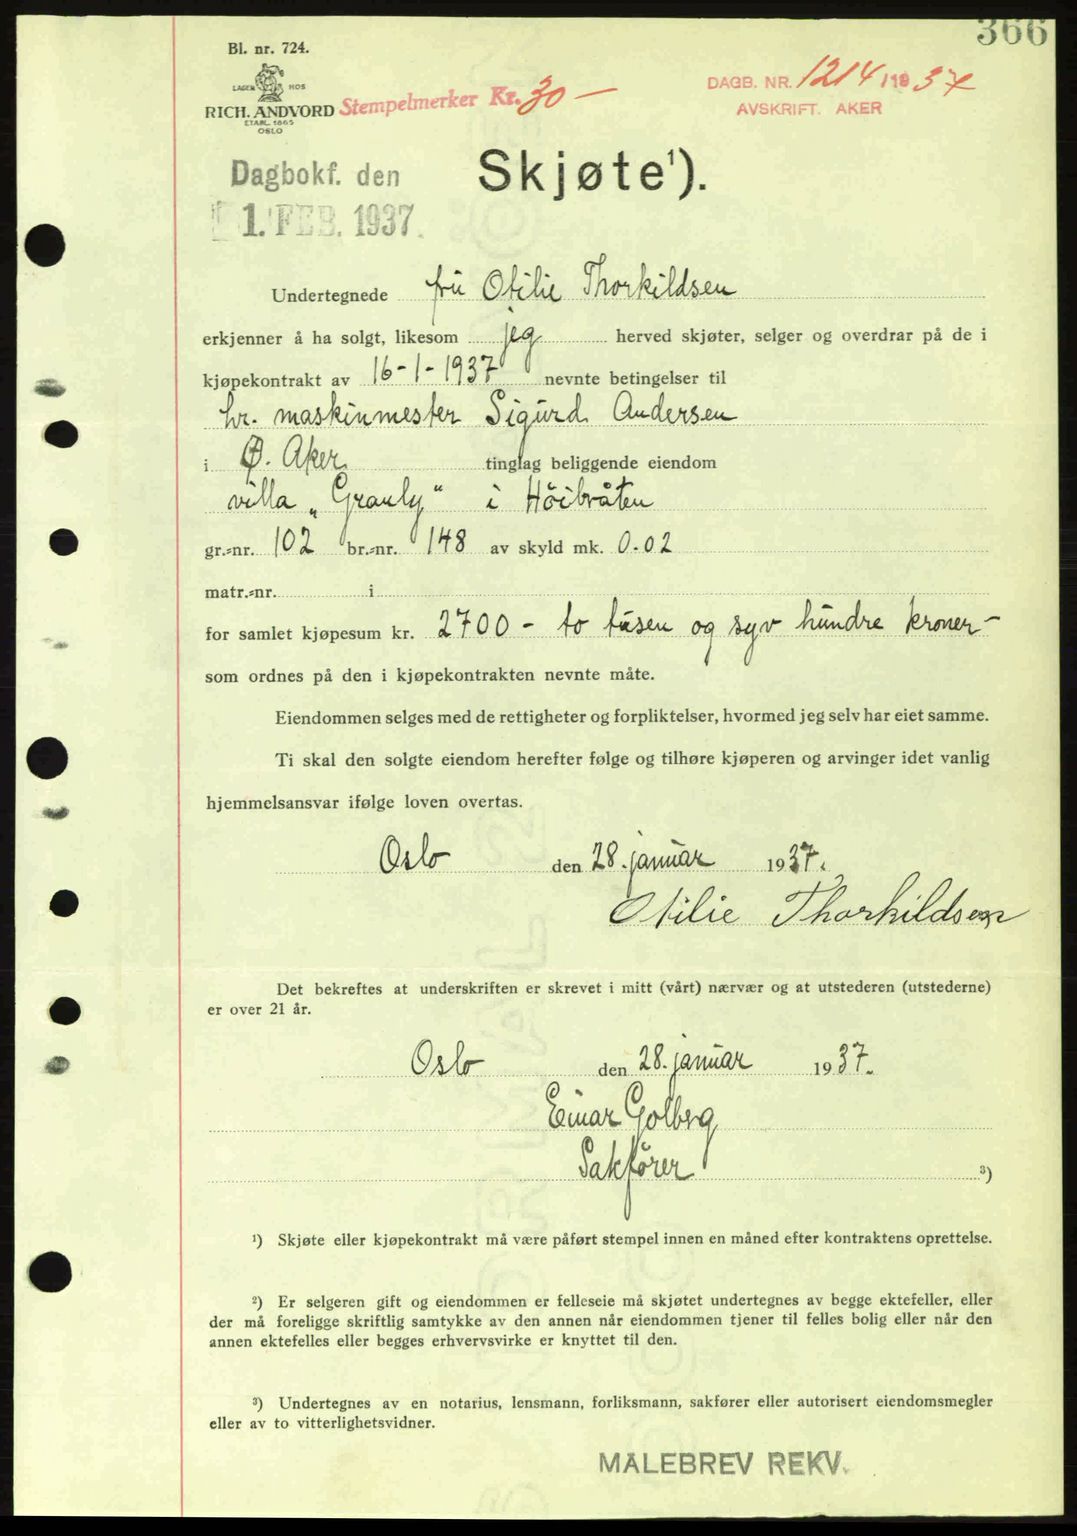 366
Bl. nr. 724.
LAGER HOS
RICH. ANDVORD
ETABL. 1865
OSLO
Stempelmerker Kr. 30 —
DAGB. NR. 1214 1937
AVSKRIFT. AKER
Dagbokf. den
1. FEB. 1937.
Skjøte¹).
Undertegnede fru Otilie Thorkildsen
erkjenner å ha solgt, likesom jeg herved skjøter, selger og overdrar på de i
kjøpekontrakt av 16-1-1937 nevnte betingelser til
hr. maskinmester Sigurd Andersen
i Ø. Aker tinglag beliggende eiendom
villa „Granly“ i Höibråten
gr.-nr. 102 br.-nr. 148 av skyld mk. 0.02
matr.-nr. i
for samlet kjøpesum kr. 2700 - to tusen og syv hundre kroner -
som ordnes på den i kjøpekontrakten nevnte måte.
Eiendommen selges med de rettigheter og forpliktelser, hvormed jeg selv har eiet samme.
Ti skal den solgte eiendom herefter følge og tilhøre kjøperen og arvinger idet vanlig
hjemmelsansvar ifølge loven overtas.
Oslo den 28. januar 1937.
Otilie Thorkildsen
Det bekreftes at underskriften er skrevet i mitt (vårt) nærvær og at utstederen (utstederne)
er over 21 år.
Oslo den 28. januar 1937.
Einar Golberg
Sakfører ³)
¹) Skjøte eller kjøpekontrakt må være påført stempel innen en måned efter kontraktens oprettelse.
²) Er selgeren gift og eiendommen er felleseie må skjøtet undertegnes av begge ektefeller, eller
der må foreligge skriftlig samtykke av den annen når eiendommen tjener til felles bolig eller når den
annen ektefelles eller begges erhvervsvirke er knyttet til den.
³) Undertegnes av en notarius, lensmann, forliksmann, sakfører eller autorisert eiendomsmegler
eller av to vitterlighetsvidner.
MÅLEBREV REKV.